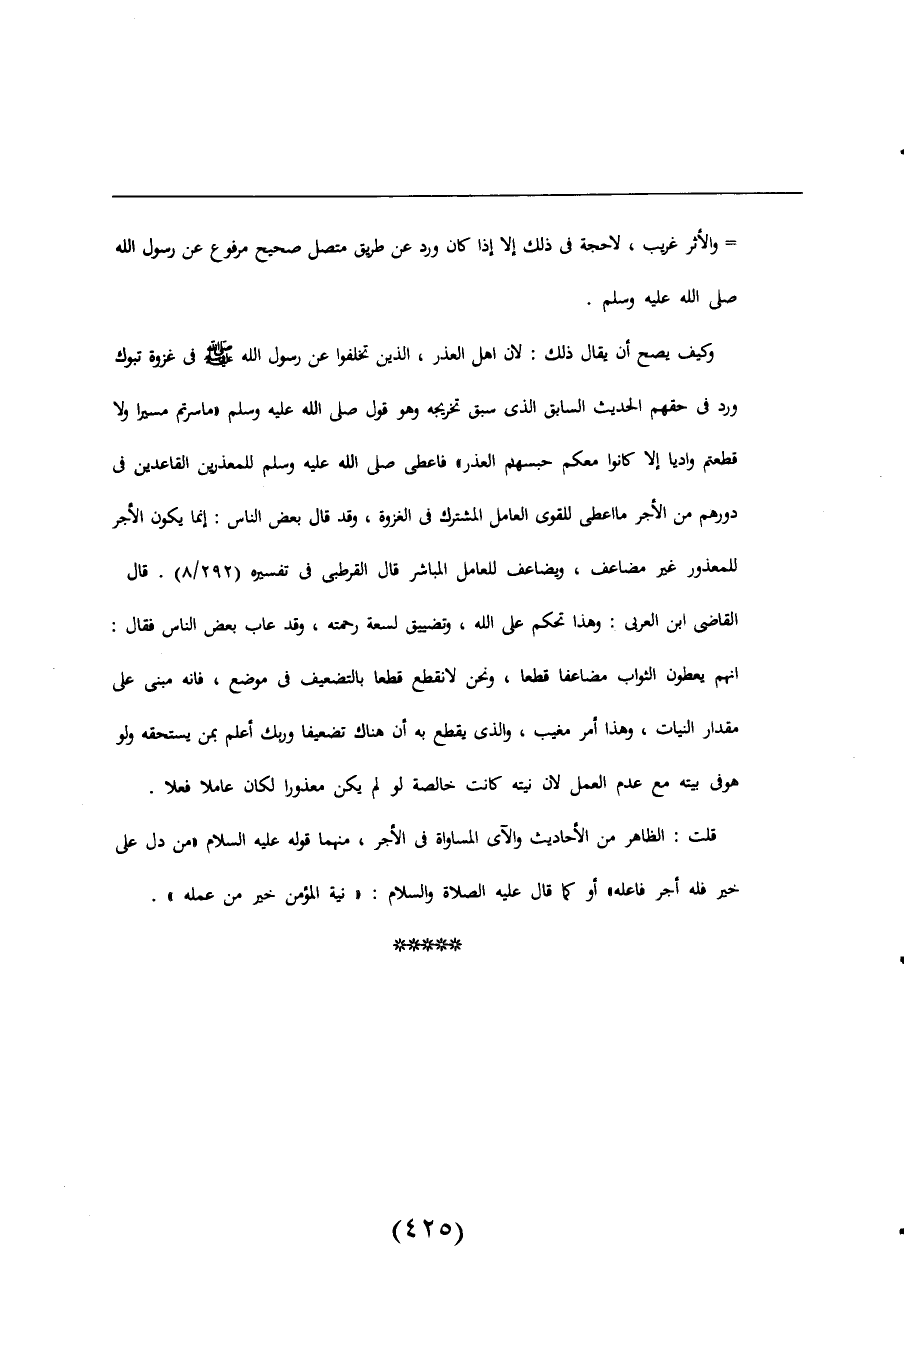 = والأثر غريب ، لاحجة فى ذلك إلا إذا كان ورد عن طريق متصل صحيح مرفوع عن رسول الله
صلى الله عليه وسلم .
وكيف يصح أن يقال ذلك : لان اهل العذر ، الذين تخلفوا عن رسول الله ﷺ فى غزوة تبوك
ورد فى حقهم الحديث السابق الذى سبق تخريجه وهو قول صلى الله عليه وسلم «ماسرتم مسيرا ولا
قطعتم واديا إلا كانوا معكم حبسهم العذر» فاعطى صلى الله عليه وسلم للمعذرين القاعدين فى
دورهم من الأجر مااعطى للقوى العامل المشترك فى الغزوة ، وقد قال بعض الناس : إنما يكون الأجر
للمعذور غير مضاعف ، ويضاعف للعامل المباشر قال القرطبى فى تفسيره (٨/٢٩٢) . قال
القاضى ابن العربى : وهذا تحكم على الله ، وتضييق لسعة رحمته ، وقد عاب بعض الناس فقال :
انهم يعطون الثواب مضاعفا قطعا ، ونحن لانقطع قطعا بالتضعيف فى موضع ، فانه مبنى على
مقدار النيات ، وهذا أمر مغيب ، والذى يقطع به أن هناك تضعيفا وربك أعلم بمن يستحقه ولو
هوفى بيته مع عدم العمل لان نيته كانت خالصة لو لم يكن معذورا لكان عاملا فعلا .
قلت : الظاهر من الأحاديث والآى المساواة فى الأجر ، منهما قوله عليه السلام «من دل على
خير فله أجر فاعله» أو كما قال عليه الصلاة والسلام : « نية المؤمن خير من عمله » .
*****
(٤٢٥)